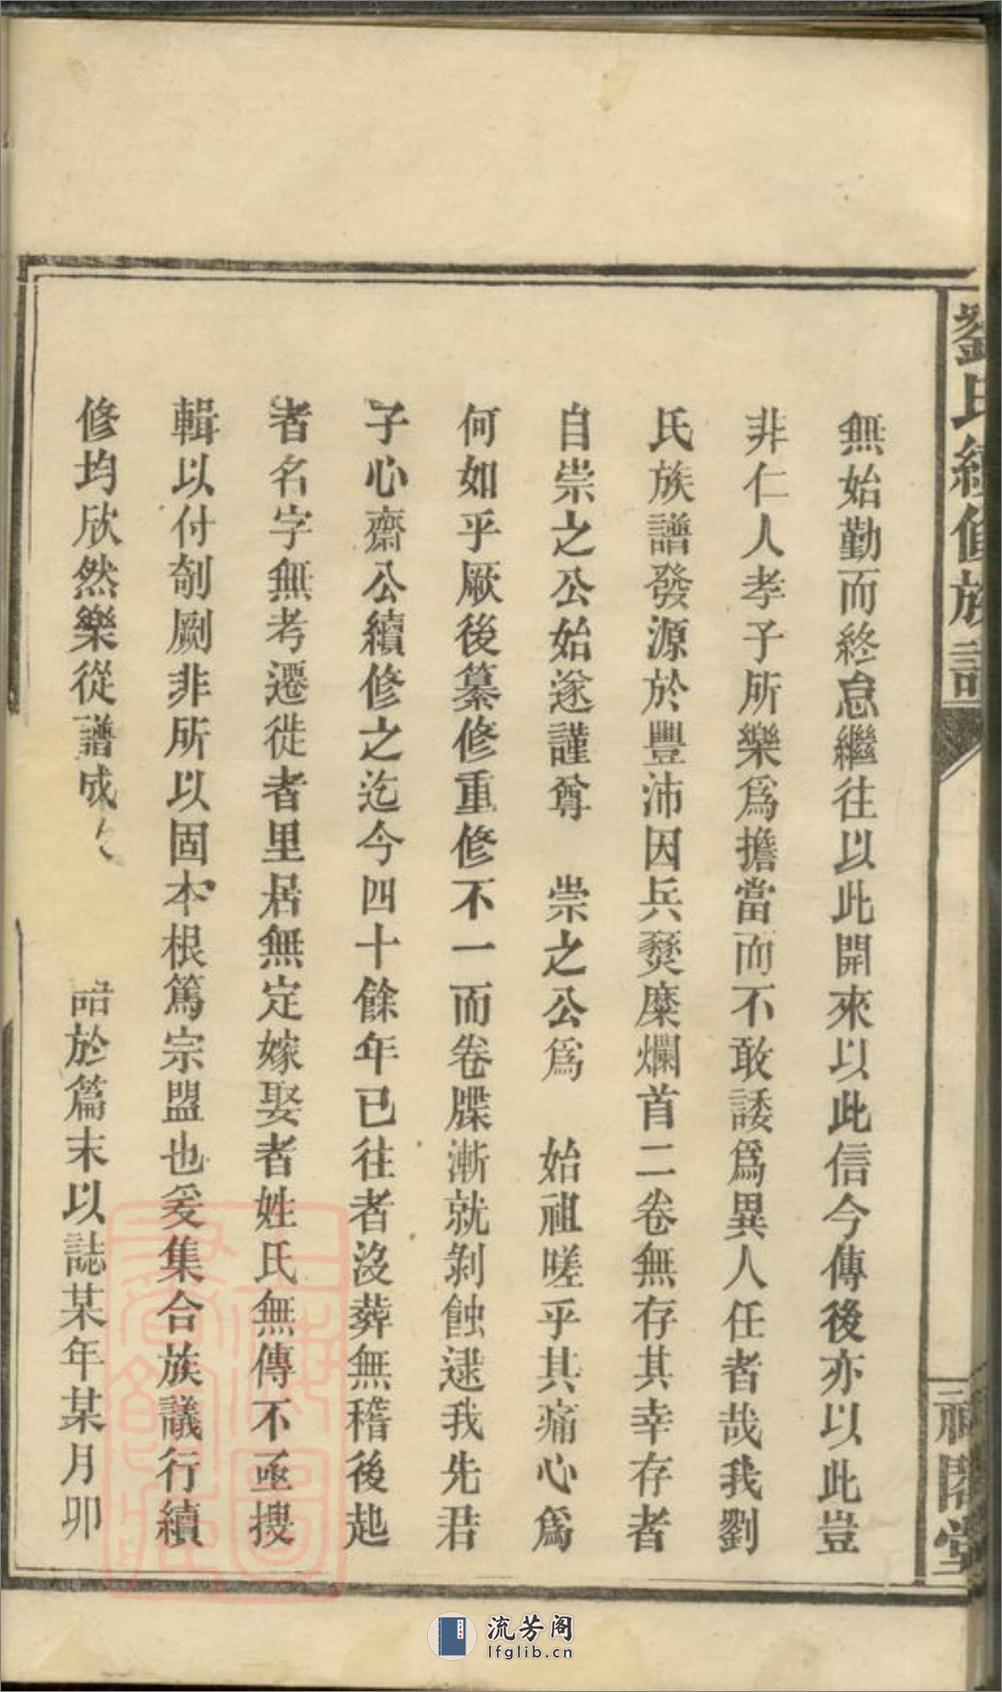 劉氏續修族譜
無始勤而終怠繼往以此開來以此信今傳後亦以此豈
非仁人孝子所樂爲擔當而不敢諉爲異人任者哉我劉
氏族譜發源於豐沛因兵燹糜爛首二卷無存其幸存者
自崇之公始遂謹尊 崇之公爲 始祖嗟乎其痛心爲
何如乎厥後纂修重修不一而卷牒漸就剝蝕逮我先君
子心齋公續修之迄今四十餘年已往者沒葬無稽後起
者名字無考遷徙者里居無定嫁娶者姓氏無傳不亟搜
輯以付剞劂非所以固本根篤宗盟也爰集合族議行續
修均欣然樂從譜成 於篇末以誌某年某月卯
閣堂
流芳阁
lfglib.cn